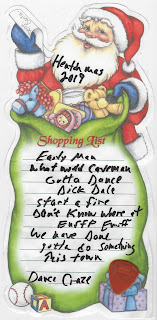 Heatchmas
2019
Shopping List
Early Man
What would Caveman
Gotta Dance
Dick Dale
start a fire
Don't Know where at
Enfff Enuff
We have Done
gotta do something
this town
Dance Craze